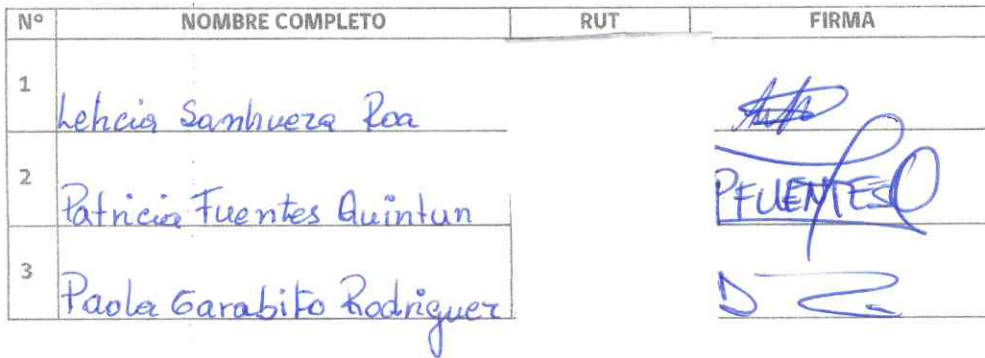 Nº NOMBRE COMPLETO RUT FIRMA
1 Leticia Sanhueza Roa
2 Patricia Fuentes Quintun PFUENTESQ
3 Paola Garabito Rodriguez